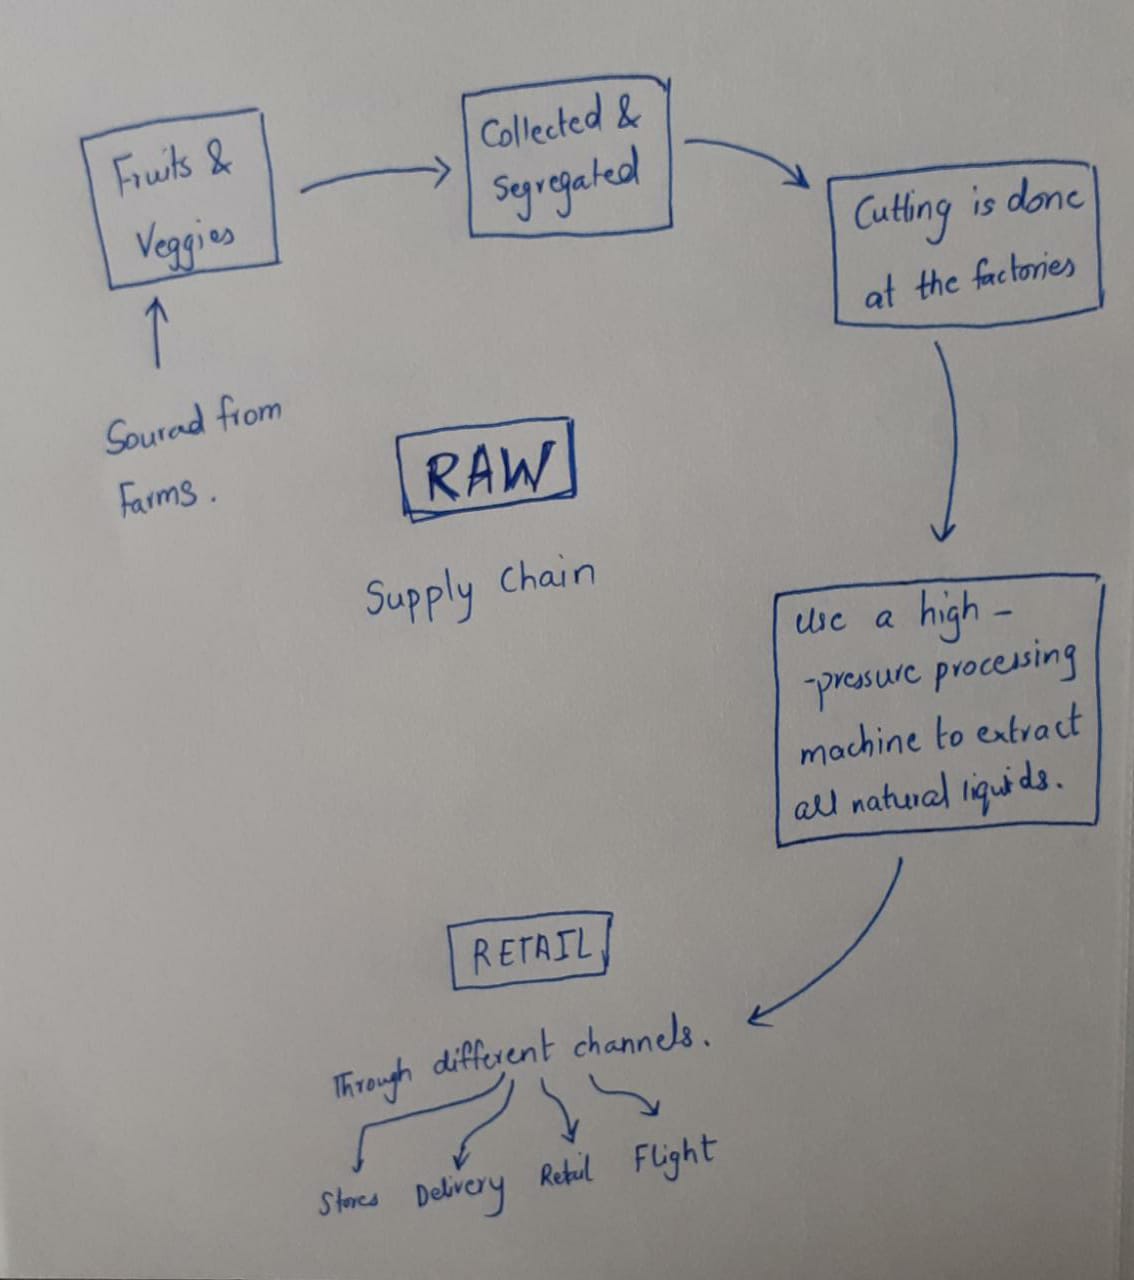 Fruits &
Veggies
Collected &
Segregated
Cutting is done
at the factories
Sourced from
Farms.
RAW
Supply Chain
Use a high -
-pressure processing
machine to extract
all natural liquids.
RETAIL
Through different channels.
Stores Delivery Retail Flight